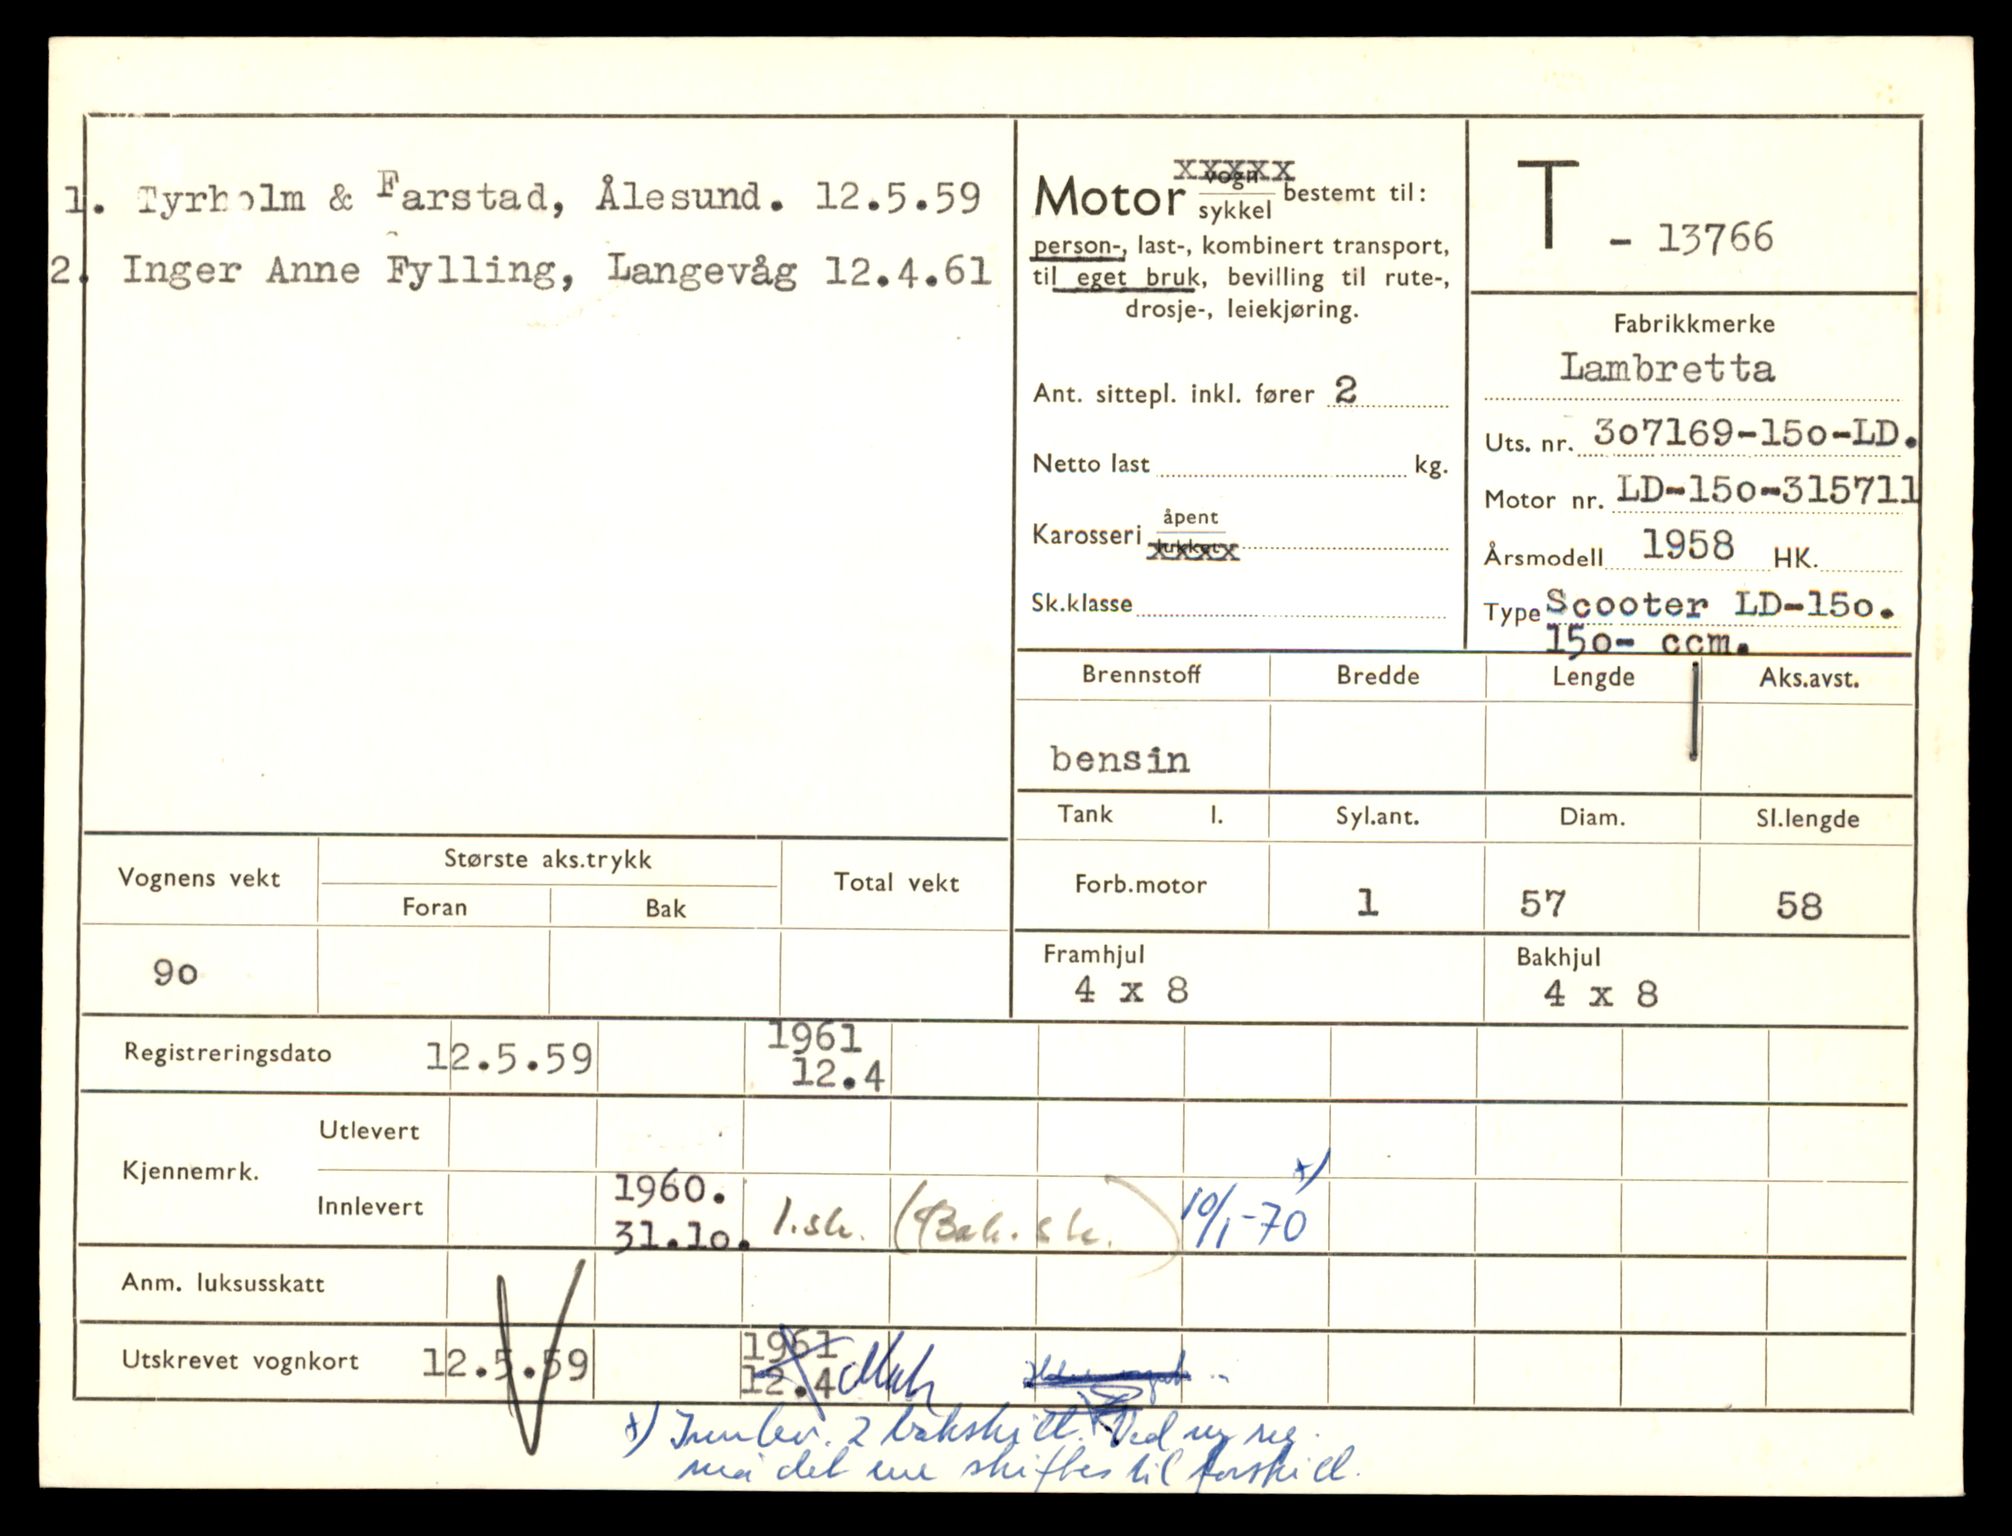 1. Tyrholm & Farstad, Ålesund. 12.5.59
2. Inger Anne Fylling, Langevåg 12.4.61
Motor vogn sykkel bestemt til:
xxxxx
person-, last-, kombinert transport,
til eget bruk, bevilling til rute-,
drosje-, leiekjøring.
Ant. sittepl. inkl. fører 2
Netto last kg.
Karosseri åpent lukket
xxxx
Sk.klasse
T - 13766
Fabrikkmerke
Lambretta
Uts. nr. 307169-150-LD.
Motor nr. LD-150-315711
Årsmodell 1958 HK.
Type Scooter LD-150.
150- ccm.
Brennstoff Bredde Lengde Aks.avst.
bensin
Tank l. Syl.ant. Diam. Sl.lengde
Forb.motor 1 57 58
Framhjul Bakhjul
4 x 8 4 x 8
Vognens vekt Største aks.trykk Total vekt
Foran Bak
90
Registreringsdato 12.5.59 1961
12.4
Kjennemrk. Utlevert
Innlevert 1960.
31.10. 1.sk. (Bak.sk.) 10/1-70 x)
Anm. luksusskatt
Utskrevet vognkort 12.5.59 1961
12.4
x) Innlev. 2 bakskilt. Ved ny reg.
må det ene skiftes til forskilt.